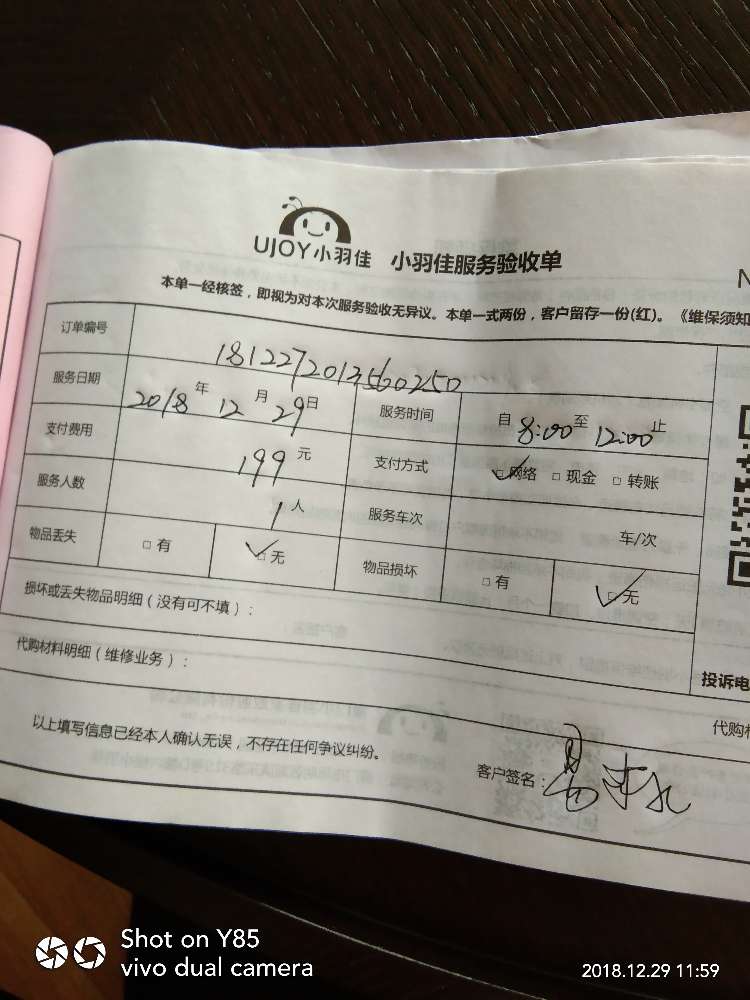 UJOY小羽佳 小羽佳服务验收单
N
本单一经核签，即视为对本次服务验收无异议。本单一式两份，客户留存一份(红)。《维保须知
订单编号 1812272013560250
服务日期 2018年12月29日 服务时间 自8:00至12:00止
支付费用 199元 支付方式 网络 □现金 □转账
服务人数 1人 服务车次 车/次
物品丢失 □有 □无 物品损坏 □有 □无
损坏或丢失物品明细（没有可不填）：
代购材料明细（维修业务）：
投诉电
代购材
以上填写信息已经本人确认无误，不存在任何争议纠纷。
客户签名：
Shot on Y85
vivo dual camera
2018.12.29 11:59